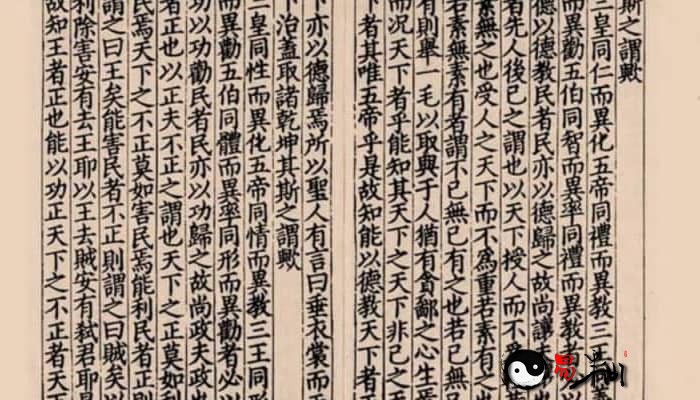 斯之謂歟
三皇同仁而異化五帝同禮而異教三王同義
而異勸五伯同智而異率同禮而異教者必
德以德教民者民亦以德歸之故尚讓
者先人後己之謂也以天下授人而不
素無之也受人之天下而不為重若素有之也
若素無素有者謂不己無己有之也若己無己
有則舉一毛以取與于人猶有貪鄙之心生焉
而況天下者乎能知其天下之天下非己之天
下者其唯五帝乎是故知能以德教天下者
下亦以德歸焉所以聖人有言曰垂衣裳而天
下治蓋取諸乾坤其斯之謂歟
三皇同性而異化五帝同情而異教三王同形
而異勸五伯同體而異率同形而異勸者必以
功以功勸民者民亦以功歸之故尚政夫政也
者正也以正夫不正之謂也天下之正莫如利
民焉天下之不正莫如害民焉能利民者正則
謂之曰王矣能害民者不正則謂之曰賊矣以
利除害安有去王耶以王去賊安有弒君耶是
故知王者正也能以功正天下之不正者天下
易